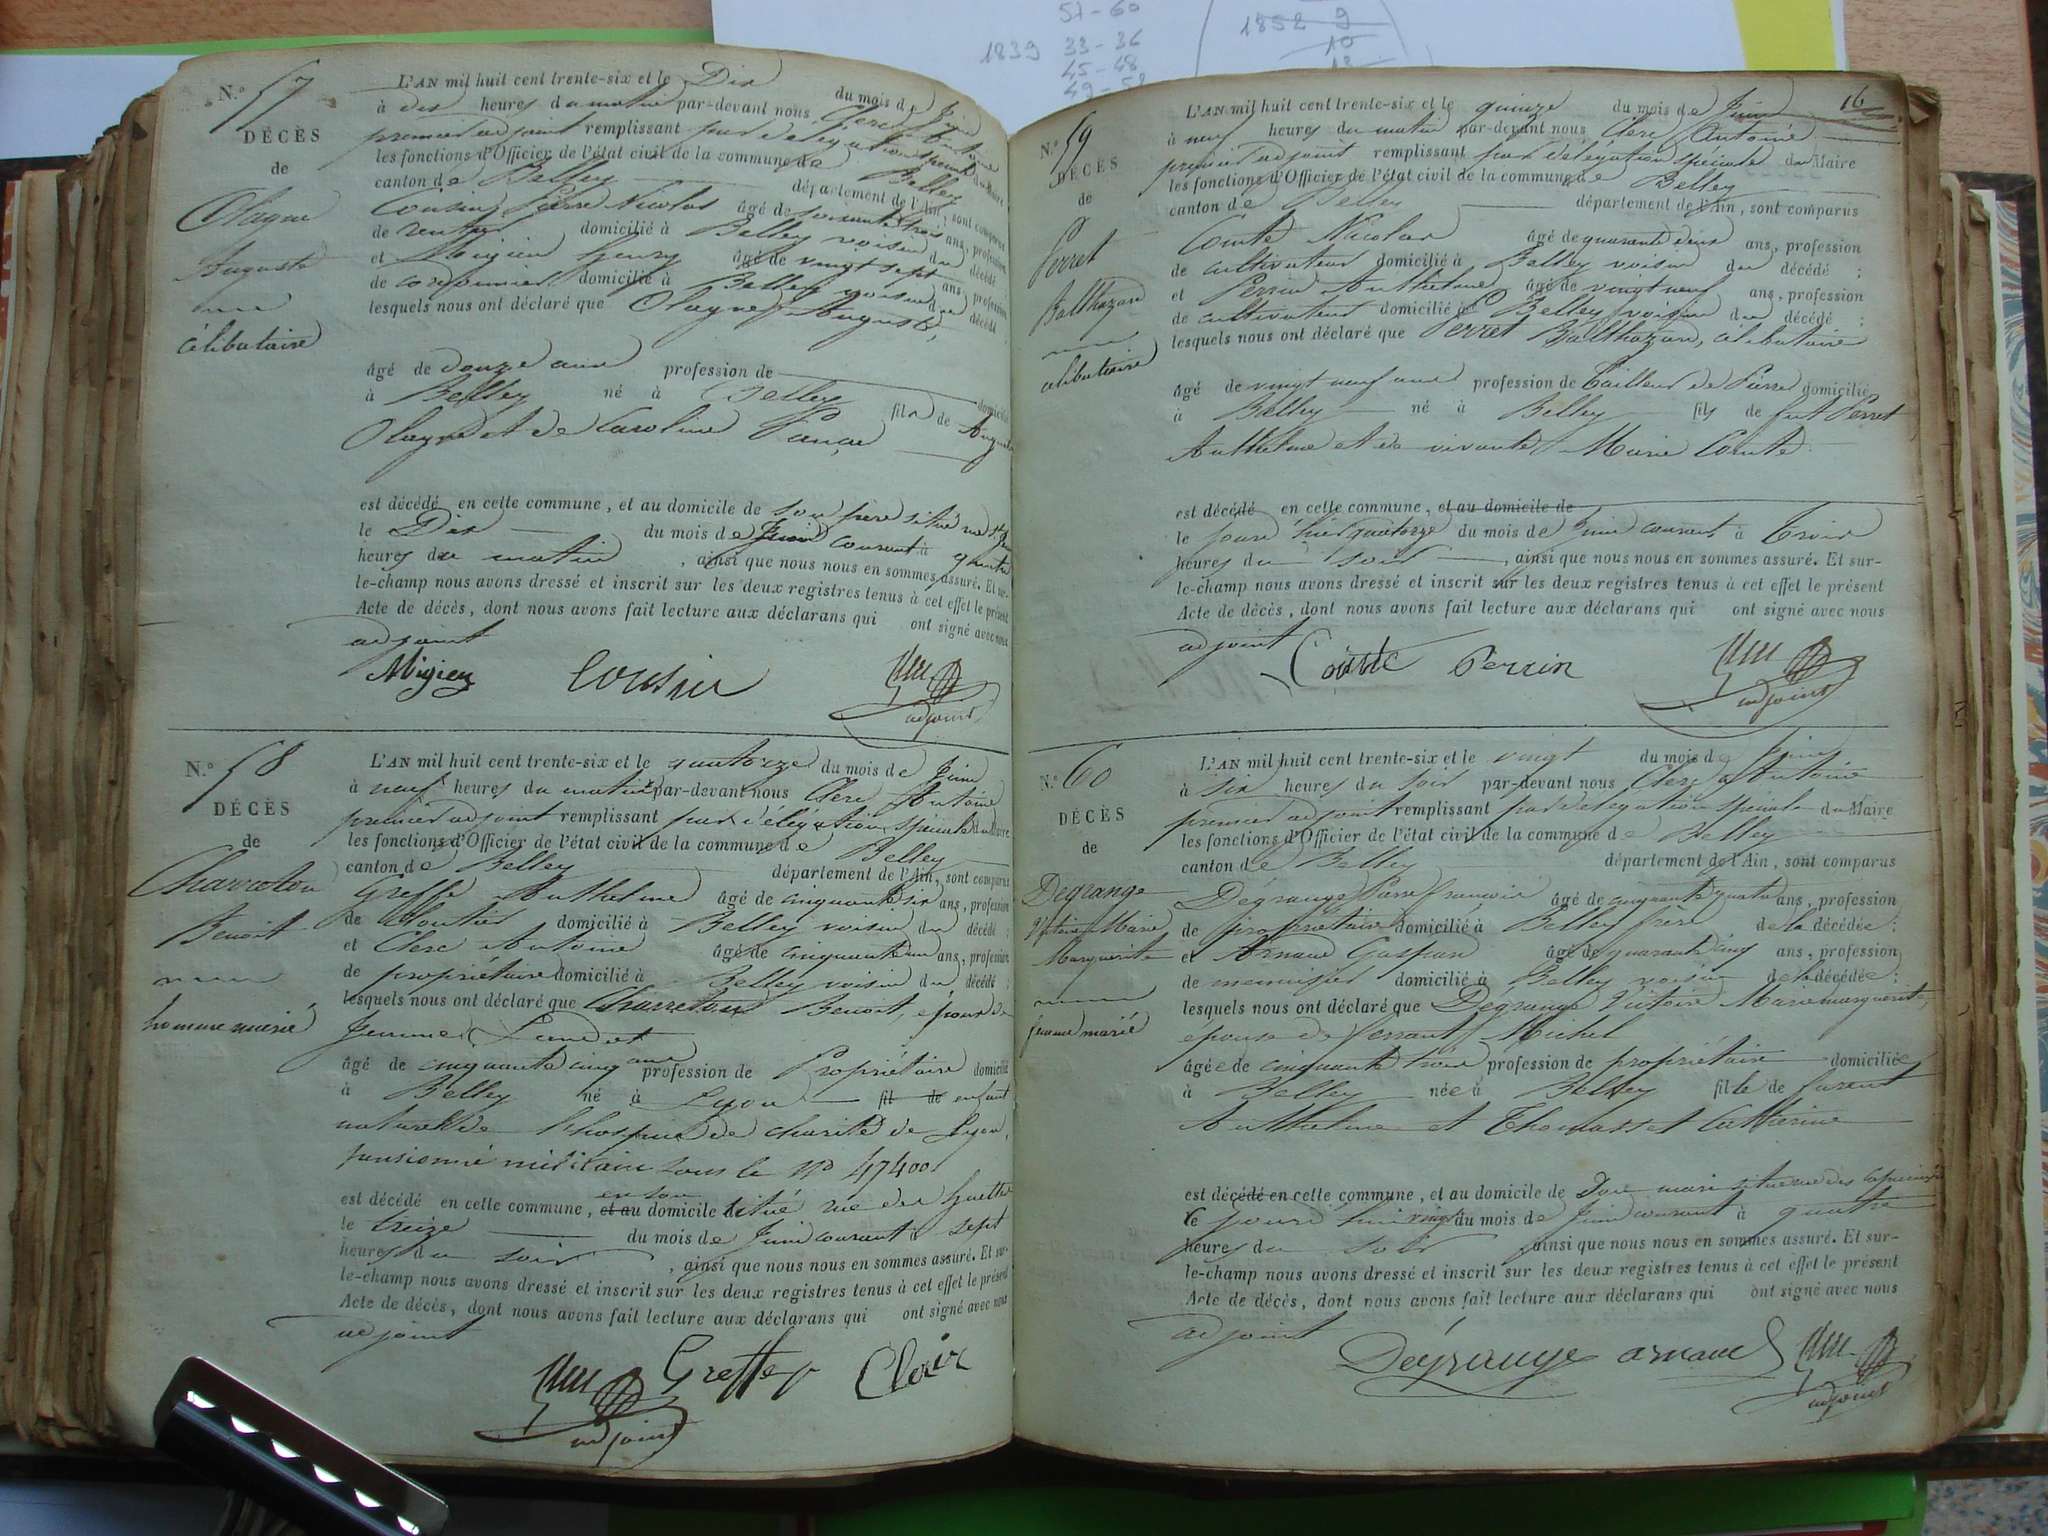 57-60
1839 33-36
45-48
49-52
1852 9
10
12
N.° 57
DÉCÈS
de
Olagne
Auguste
célibataire
L'AN mil huit cent trente-six et le Dix du mois de Juin
à dix heures du matin par-devant nous Clerc Antoine
premier adjoint remplissant par délégation spéciale du Maire
les fonctions d'Officier de l'état civil de la commune de Belley
canton de Belley département de l'Ain, sont comparus
Cousin Pierre Nicolas âgé de soixante trois ans, profession
de rentier domicilié à Belley voisin du décédé ;
et Migieu henry âgé de vingt sept ans, profession
de cordonnier domicilié à Belley voisin du décédé ;
lesquels nous ont déclaré que Olagne Auguste,
âgé de douze ans profession de domicilié
à Belley né à Belley fils de Auguste
Olagne et de Caroline
est décédé en cette commune, et au domicile de son père situé rue St
le Dix du mois de Juin courant à quatre
heures du matin, ainsi que nous nous en sommes assuré. Et sur-
le-champ nous avons dressé et inscrit sur les deux registres tenus à cet effet le présent
Acte de décès, dont nous avons fait lecture aux déclarans qui ont signé avec nous
adjoint
Migieu Cousin
adjoint
N.° 58
DÉCÈS
de
Charreton
Benoit
homme marié
L'AN mil huit cent trente-six et le quatorze du mois de Juin
à neuf heures du matin par-devant nous Clerc Antoine
premier adjoint remplissant par délégation spéciale du Maire
les fonctions d'Officier de l'état civil de la commune de Belley
canton de Belley département de l'Ain, sont comparus
Greffe Anthelme âgé de cinquante six ans, profession
de Cloutier domicilié à Belley voisin du décédé ;
et Clerc Antoine âgé de cinquante un ans, profession
de propriétaire domicilié à Belley voisin du décédé ;
lesquels nous ont déclaré que Charreton Benoit, époux de
Jeanne
âgé de cinquante cinq ans profession de Propriétaire domicilié
à Belley né à Lyon fil de enfant
naturel de l'hospice de charité de Lyon,
pensionné militaire sous le N° 47400
est décédé en cette commune, et au en son domicile situé rue du
le treize du mois de Juin courant à sept
heures du soir, ainsi que nous nous en sommes assuré. Et sur-
le-champ nous avons dressé et inscrit sur les deux registres tenus à cet effet le présent
Acte de décès, dont nous avons fait lecture aux déclarans qui ont signé avec nous
adjoint
Greffe Clair
adjoint
16
N.° 59
DÉCÈS
de
Perret
Balthazar
célibataire
L'AN mil huit cent trente-six et le quinze du mois de Juin
à neuf heures du matin par-devant nous Clerc Antoine
premier adjoint remplissant par délégation spéciale du Maire
les fonctions d'Officier de l'état civil de la commune de Belley
canton de Belley département de l'Ain, sont comparus
Comte Nicolas âgé de quarante deux ans, profession
de cultivateur domicilié à Belley voisin du décédé ;
et Perrin Anthelme âgé de vingt neuf ans, profession
de cultivateur domicilié à Belley voisin du décédé ;
lesquels nous ont déclaré que Perret Balthazar, célibataire
âgé de vingt neuf ans profession de Tailleur de Pierre domicilié
à Belley né à Belley fils de feu Perret
Anthelme et de vivante Marie Comte
est décédé en cette commune, et au domicile de
le jour d'hier quatorze du mois de Juin courant à Trois
heures du soir, ainsi que nous nous en sommes assuré. Et sur-
le-champ nous avons dressé et inscrit sur les deux registres tenus à cet effet le présent
Acte de décès, dont nous avons fait lecture aux déclarans qui ont signé avec nous
adjoint
Comte Perrin
adjoint
N.° 60
DÉCÈS
de
Degrange
Victoire Marie
Marguerite
femme marié
L'AN mil huit cent trente-six et le vingt du mois de Juin
à six heures du soir par-devant nous Clerc Antoine
premier adjoint remplissant par délégation spéciale du Maire
les fonctions d'Officier de l'état civil de la commune de Belley
canton de Belley département de l'Ain, sont comparus
Dégrange Pierre françois âgé de cinquante quatre ans, profession
de propriétaire domicilié à Belley frère de la décédée ;
et Arnaud Gaspard âgé de quarante cinq ans, profession
de menuisier domicilié à Belley voisin de la décédée ;
lesquels nous ont déclaré que Degrange Victoire Marie marguerite,
épouse de ferrant Michel
âgée de cinquante trois profession de propriétaire domiciliée
à Belley née à Belley fille de
Anthelme et Thomasset Catherine
est décédé en cette commune, et au domicile de Son mari situé rue des capucins
le jourd'hui vingt du mois de Juin courant à quatre
heures du soir ainsi que nous nous en sommes assuré. Et sur-
le-champ nous avons dressé et inscrit sur les deux registres tenus à cet effet le présent
Acte de décès, dont nous avons fait lecture aux déclarans qui ont signé avec nous
adjoint
Dégrange arnaud
adjoint